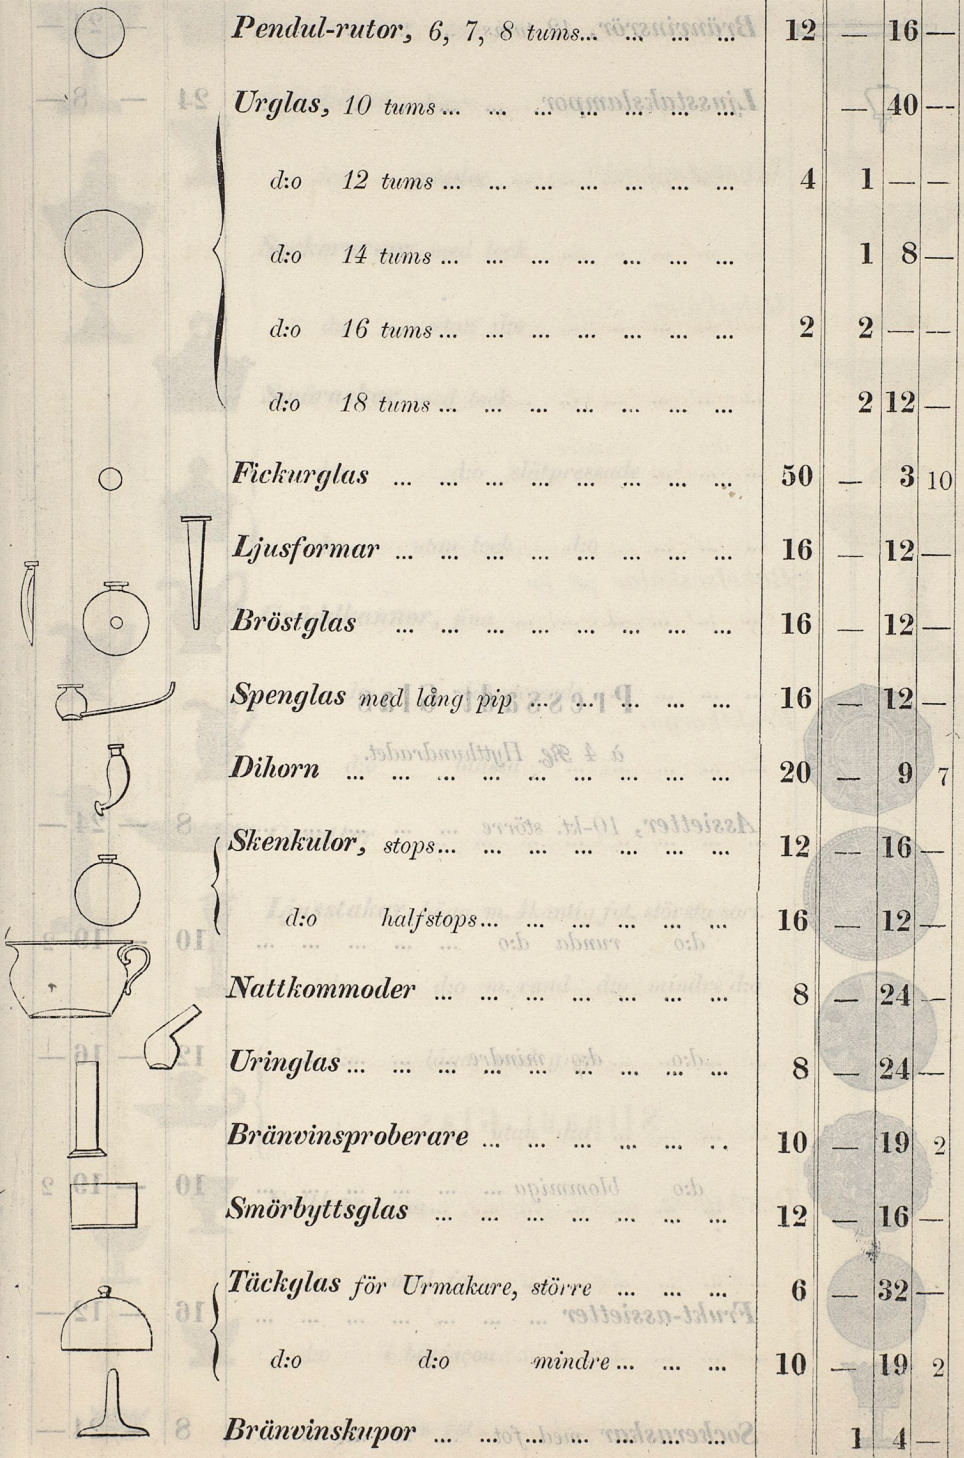 Pendul-rutor, 6, 7, 8 tums... ... ... ... 12 — 16 —
Urglas, 10 tums... ... ... ... ... ... ... — 40 --
d:o 12 tums... ... ... ... ... ... ... 4 1 — —
d:o 14 tums... ... ... ... ... ... ... 1 8 —
d:o 16 tums... ... ... ... ... ... ... 2 2 — —
d:o 18 tums... ... ... ... ... ... ... 2 12 —
Fickurglas ... ... ... ... ... ... ... ... 50 — 3 10
Ljusformar ... ... ... ... ... ... ... ... 16 — 12 —
Bröstglas ... ... ... ... ... ... ... ... 16 — 12 —
Spenglas med lång pip ... ... ... ... ... 16 — 12 —
Dihorn ... ... ... ... ... ... ... ... ... 20 — 9 7
Skenkulor, stops... ... ... ... ... ... ... 12 — 16 —
d:o halfstops... ... ... ... ... ... 16 — 12 —
Nattkommoder ... ... ... ... ... ... ... 8 — 24 —
Uringlas... ... ... ... ... ... ... ... ... 8 — 24 —
Bränvinsproberare ... ... ... ... ... .. 10 — 19 2
Smörbyttsglas ... ... ... ... ... ... ... 12 — 16 —
Täckglas för Urmakare, större ... ... ... 6 — 32 —
d:o d:o mindre... ... ... 10 — 19 2
Bränvinskupor ... ... ... ... ... ... ... 1 4 —